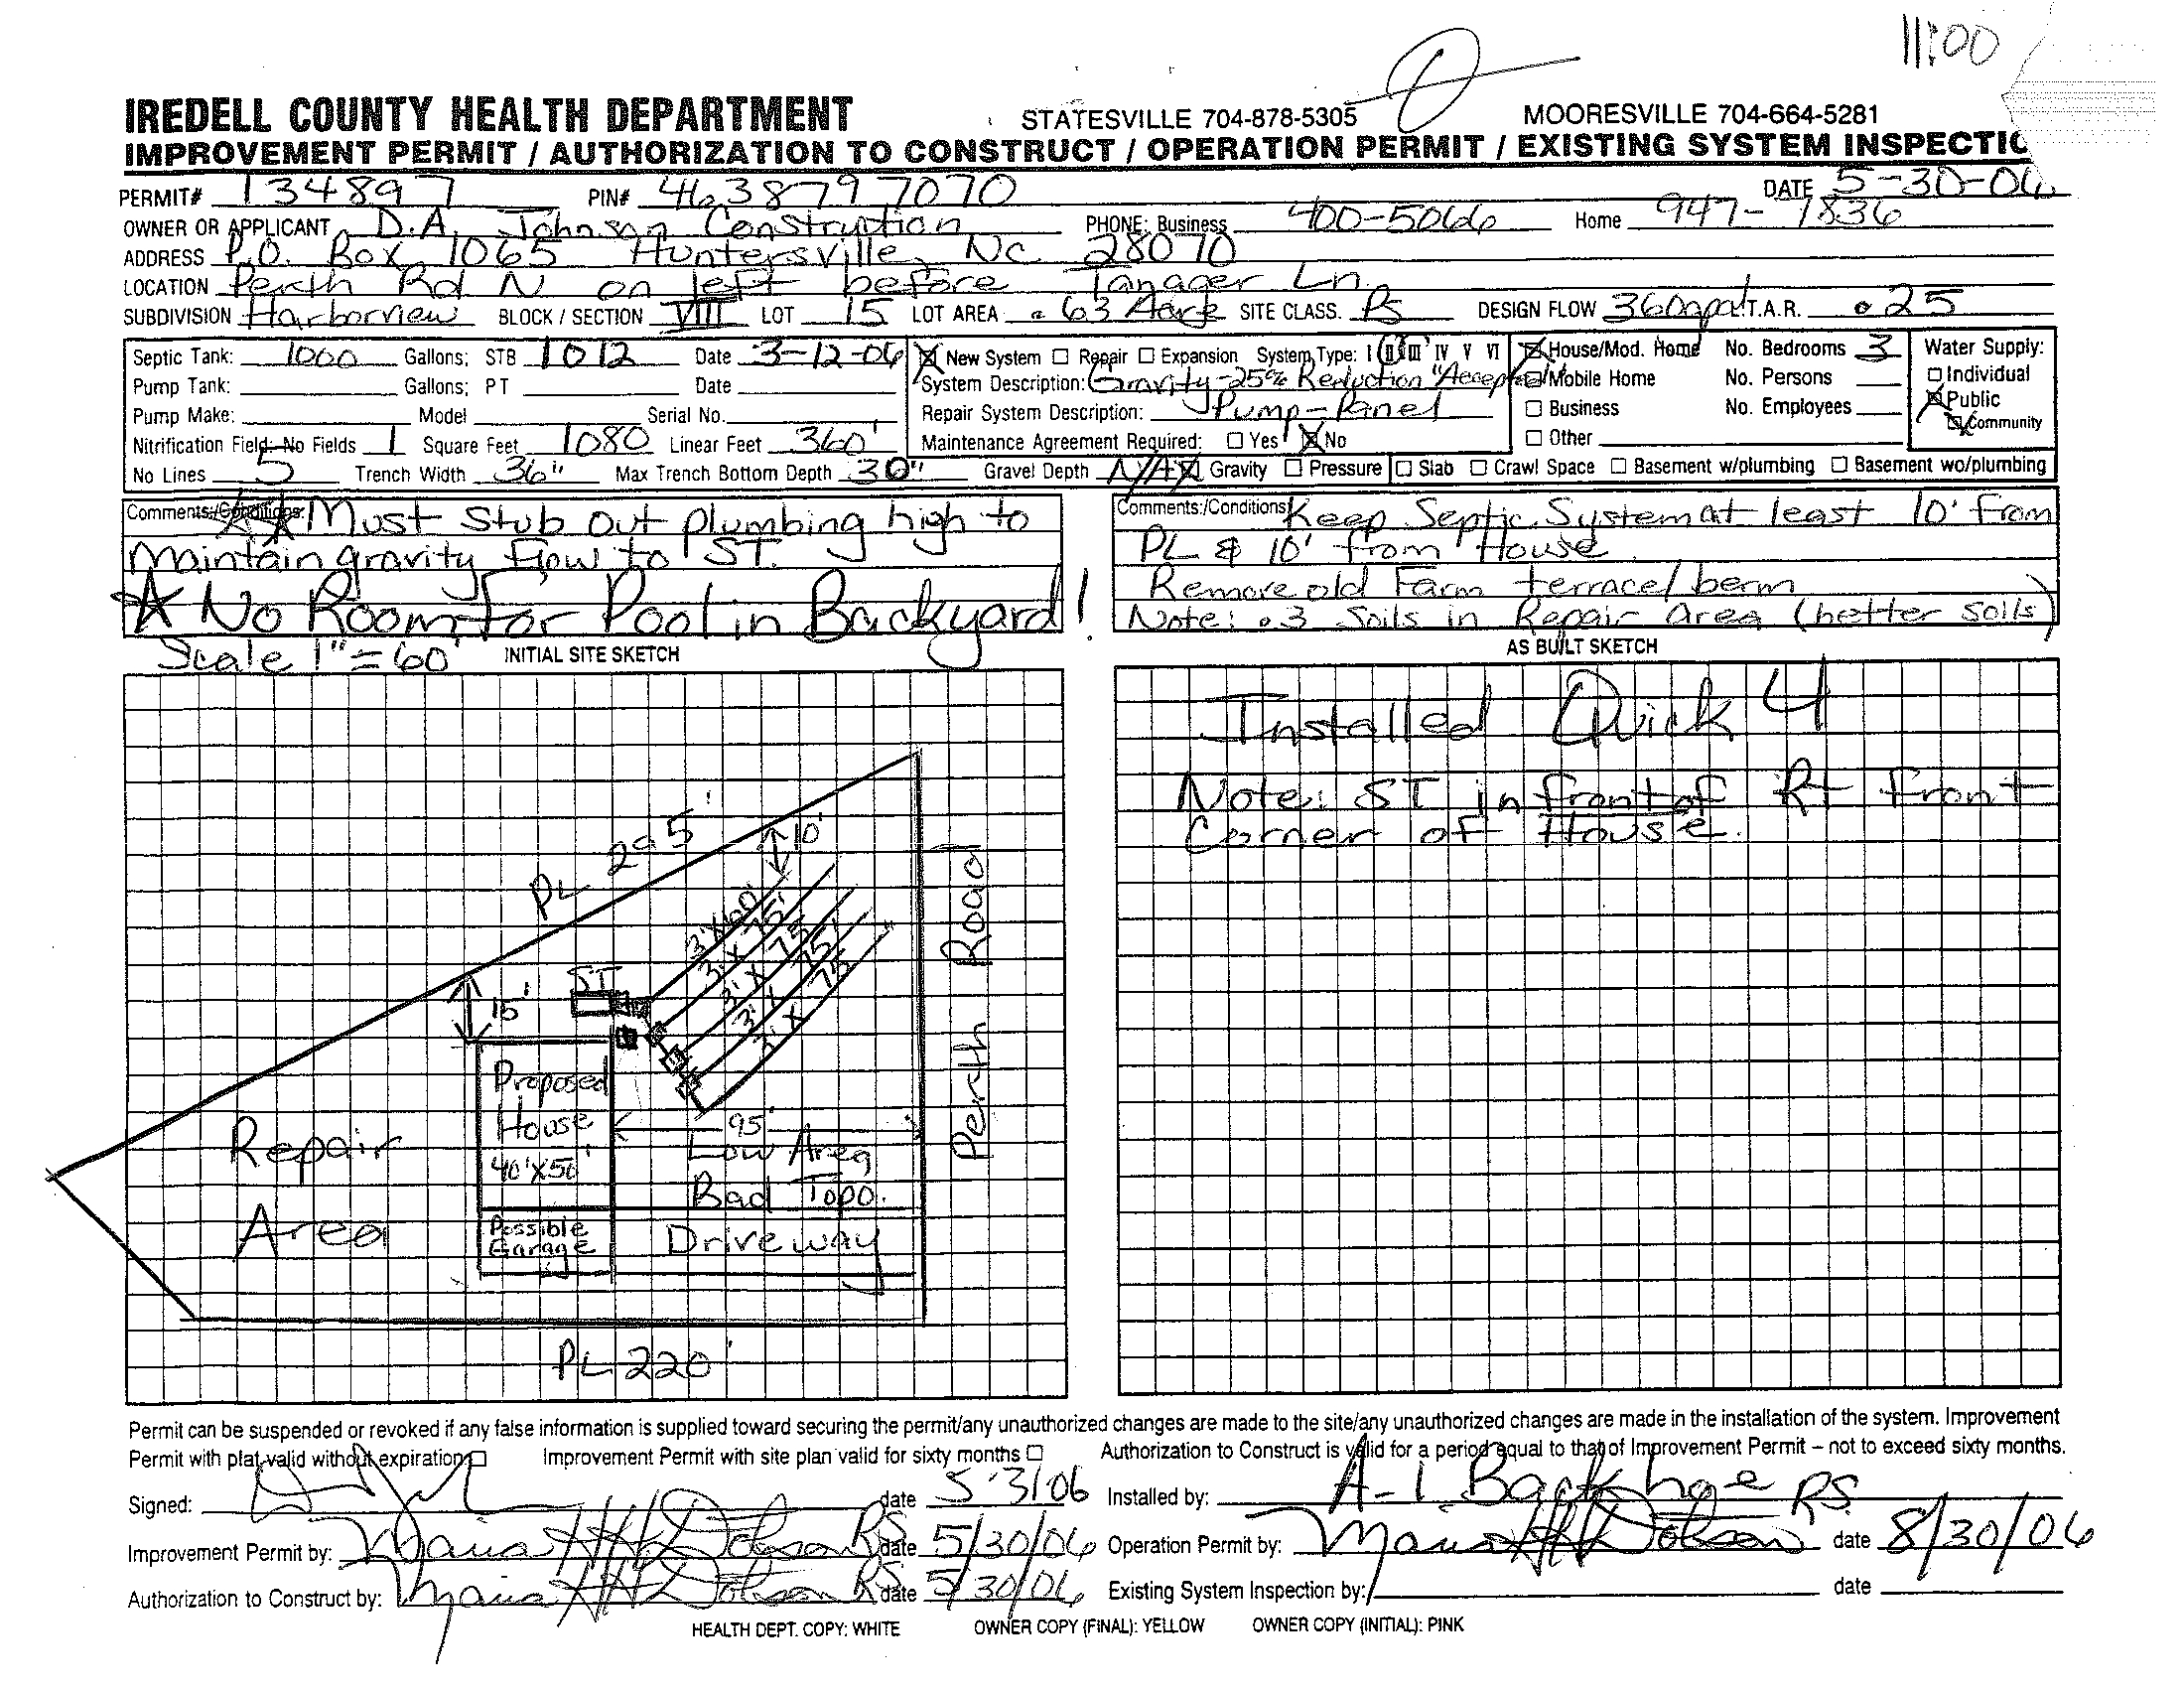 11:00
IREDELL COUNTY HEALTH DEPARTMENT STATESVILLE 704-878-5305 MOORESVILLE 704-664-5281
IMPROVEMENT PERMIT / AUTHORIZATION TO CONSTRUCT / OPERATION PERMIT / EXISTING SYSTEM INSPECTIO
PERMIT# 134897 PIN# 4638797070 DATE 5-30-06
OWNER OR APPLICANT D.A. Johnson Construction PHONE: Business 400-5066 Home 947-1836
ADDRESS P.O. Box 1065 Huntersville, Nc 28070
LOCATION Perth Rd N on left before Tanager Ln.
SUBDIVISION Harborview BLOCK / SECTION VIII LOT 15 LOT AREA .63 Acre SITE CLASS. Ps DESIGN FLOW 360gpd L.T.A.R. .25
Septic Tank: 1000 Gallons; STB 1012 Date 3-12-06 New System Repair Expansion System Type: I II III IV V VI House/Mod. Home No. Bedrooms 3 Water Supply:
Pump Tank: Gallons; PT Date System Description: Gravity-25% Reduction "Accepted" Mobile Home No. Persons Individual
Pump Make: Model Serial No. Repair System Description: Pump-Panel Business No. Employees Public
Nitrification Field: No Fields 1 Square Feet 1080 Linear Feet 360' Maintenance Agreement Required: Yes No Other Community
No Lines 5 Trench Width 36" Max Trench Bottom Depth 30" Gravel Depth N/A Gravity Pressure Slab Crawl Space Basement w/plumbing Basement wo/plumbing
Comments:/Conditions: Must stub out plumbing high to
Maintain gravity Flow to ST.
No Room For Pool in Backyard!
Comments:/Conditions: Keep Septic System at least 10' From
PL & 10' from House
Remove old Farm terrace/berm
Note: .3 Soils in Repair Area (better soils)
Scale 1"=60' INITIAL SITE SKETCH
PL 295'
10'
3'X60'
3'X75'
3'X75'
3'X75'
3'X75
ST
15'
Perth Road
Proposed
House
40'X50'
95'
Low Area
Bad Topo.
Repair
Area
Possible
Garage
Driveway
PL 220'
AS BUILT SKETCH
Installed Quick 4
Note: ST in front of Rt Front
Corner of House.
Permit can be suspended or revoked if any false information is supplied toward securing the permit/any unauthorized changes are made to the site/any unauthorized changes are made in the installation of the system. Improvement
Permit with plat valid without expiration Improvement Permit with site plan valid for sixty months Authorization to Construct is valid for a period equal to that of Improvement Permit – not to exceed sixty months.
Signed: date Installed by: A-1 Backhoe
Improvement Permit by: Maria H Dobson RS date 5/30/06 Operation Permit by: Maria H Dobson RS date 8/30/06
Authorization to Construct by: Maria H Dobson RS date 5/30/06 Existing System Inspection by: date
HEALTH DEPT. COPY: WHITE OWNER COPY (FINAL): YELLOW OWNER COPY (INITIAL): PINK